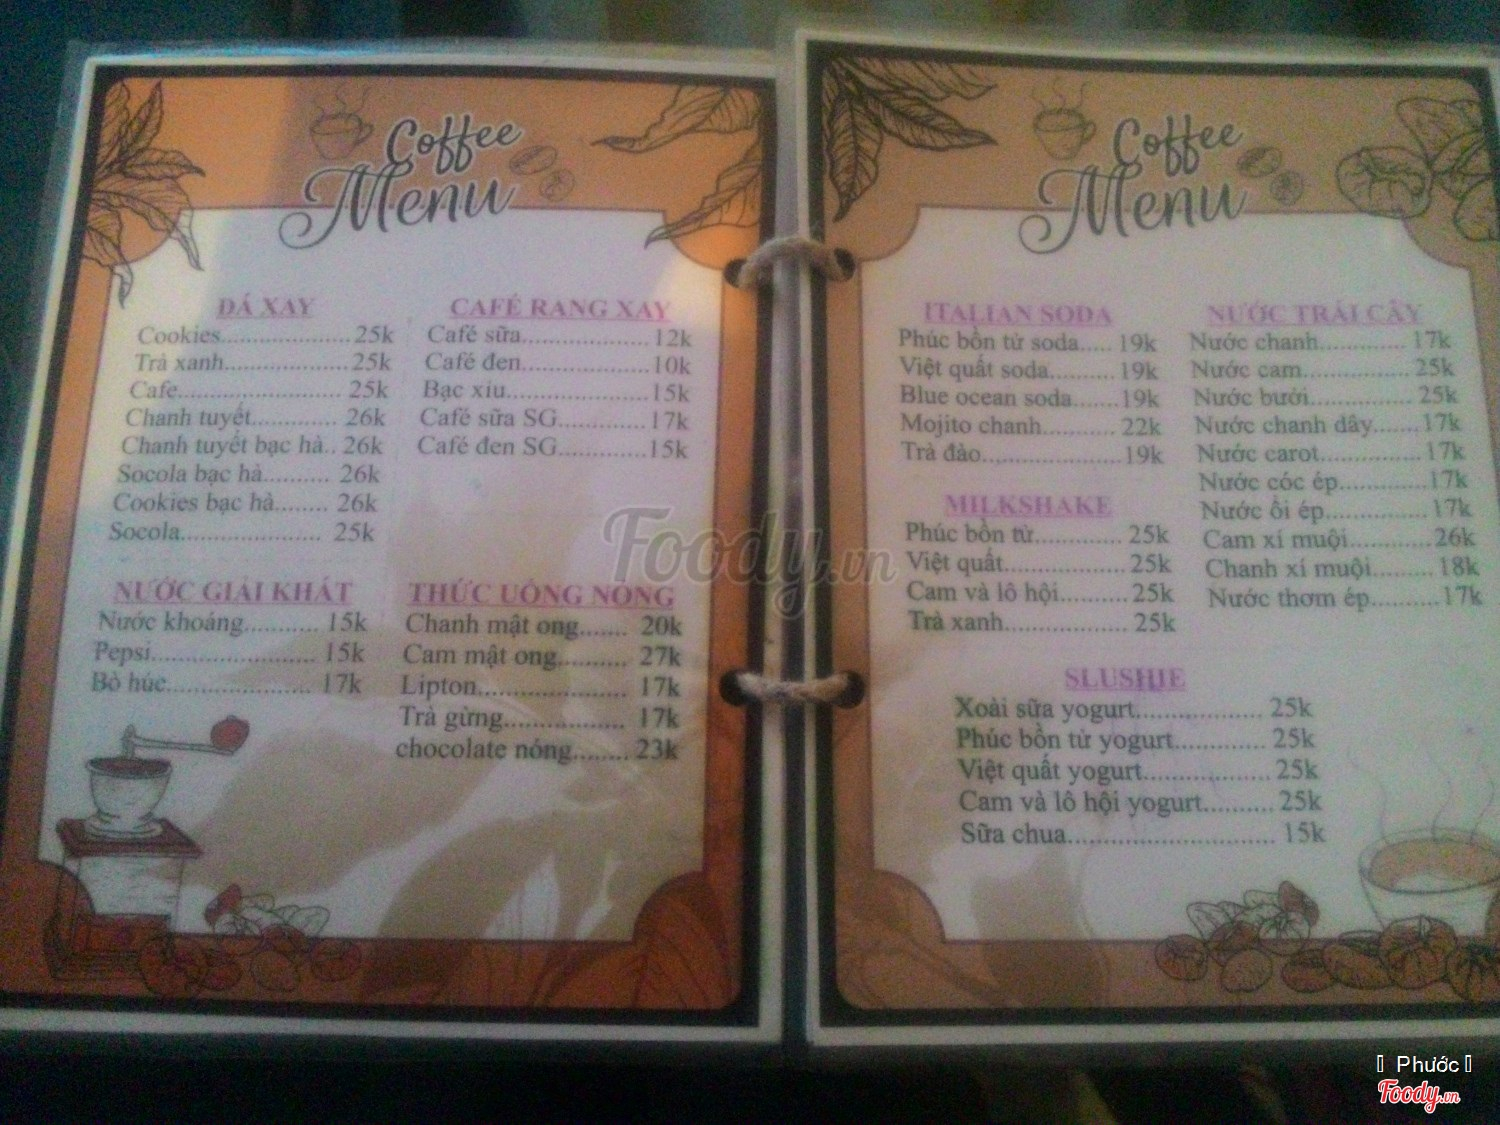 Coffee
Menu
ĐÁ XAY
Cookies..................... 25k
Trà xanh.................... 25k
Cafe.......................... 25k
Chanh tuyết............. 26k
Chanh tuyết bạc hà.. 26k
Socola bạc hà.......... 26k
Cookies bạc hà........ 26k
Socola...................... 25k
CAFÉ RANG XAY
Café sữa.................... 12k
Café đen.................... 10k
Bạc xíu...................... 15k
Café sữa SG.............. 17k
Café đen SG.............. 15k
NƯỚC GIẢI KHÁT
Nước khoáng........... 15k
Pepsi......................... 15k
Bò húc...................... 17k
THỨC UỐNG NÓNG
Chanh mật ong....... 20k
Cam mật ong.......... 27k
Lipton...................... 17k
Trà gừng.................. 17k
chocolate nóng........ 23k
Coffee
Menu
ITALIAN SODA
Phúc bồn tử soda..... 19k
Việt quất soda.......... 19k
Blue ocean soda....... 19k
Mojito chanh........... 22k
Trà đào..................... 19k
MILKSHAKE
Phúc bồn tử............. 25k
Việt quất................... 25k
Cam và lô hội........... 25k
Trà xanh................... 25k
NƯỚC TRÁI CÂY
Nước chanh............. 17k
Nước cam................. 25k
Nước bưởi................ 25k
Nước chanh dây....... 17k
Nước carot............... 17k
Nước cóc ép............. 17k
Nước ổi ép............... 17k
Cam xí muội............ 26k
Chanh xí muội......... 18k
Nước thơm ép.......... 17k
SLUSHIE
Xoài sữa yogurt................. 25k
Phúc bồn tử yogurt............. 25k
Việt quất yogurt................... 25k
Cam và lô hội yogurt.......... 25k
Sữa chua............................. 15k
Foody.vn
Phước
Foody.vn